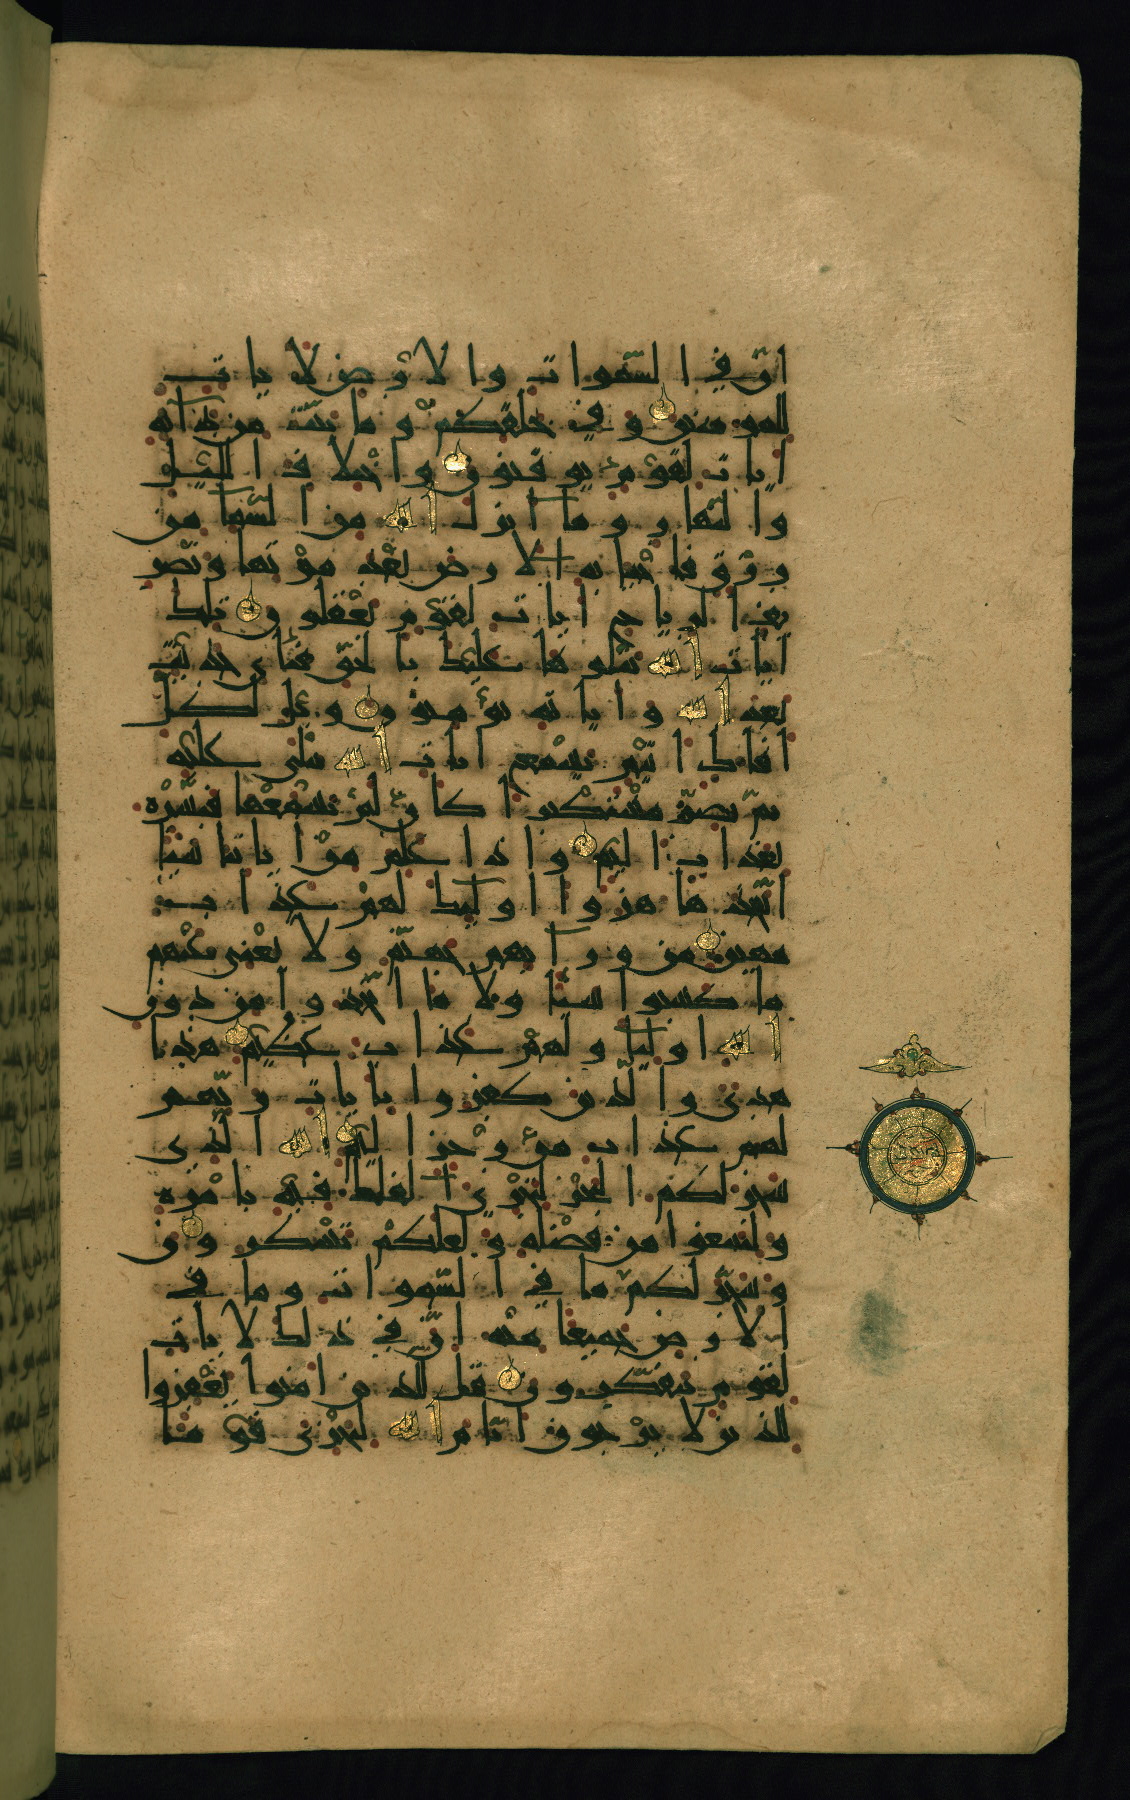 انّ في السّموات والارْض لايات
للمومنين وفي خلقكمْ وما يبثّ من دآبه
ايات لقوْم يوقنون واخْتلاف اللّيْل
والنّهار ومآ انزل الله من السّمآ من
رزْق فاحْيا به الارض بعْد موْتها وتصْر
يف الرياح ايات لقوْم يعْقلون تلك
ايات الله نتْلوها عليْك بالحقّ فباى حديث
بعد الله واياته يوْمنون ويْل لكلّ
افاك اثيْم يسْمع ايات الله تتْلى عليْه
ثمّ يصرّ مسْتكْبرا كانْ لمْ يسْمعْها فبشّرْه
بعذاب اليم واذا علم منْ اياتنا شيْا
اتّخذها هزوا اولٓيك لهمْ عذاب
مهين من ورآيهم جهنّم ولا يغْنى عنْهم
ما كسبوا شيْا ولا ما اتّخذوا من دون
الله اوليآ ولهمْ عذاب عظيْم هذا
هدى والّذين كفروا بايات ربّهم
لهم عذاب منْ رجْز اليم الله الّذى
سخر لكم البحْر لتجْرى الفلْك فيْه بامْره
ولتبتغوا من فضْله ولعلكمْ تشْكرون
وسخّر لكمْ ما في السّموات وما في
الارض جميعا منْه انّ في ذلك لايات
لقوم يتفكّرون قل للذين امنوا يغْفروا
للذين لا يرْجون ايّام الله ليجْزى قوْما